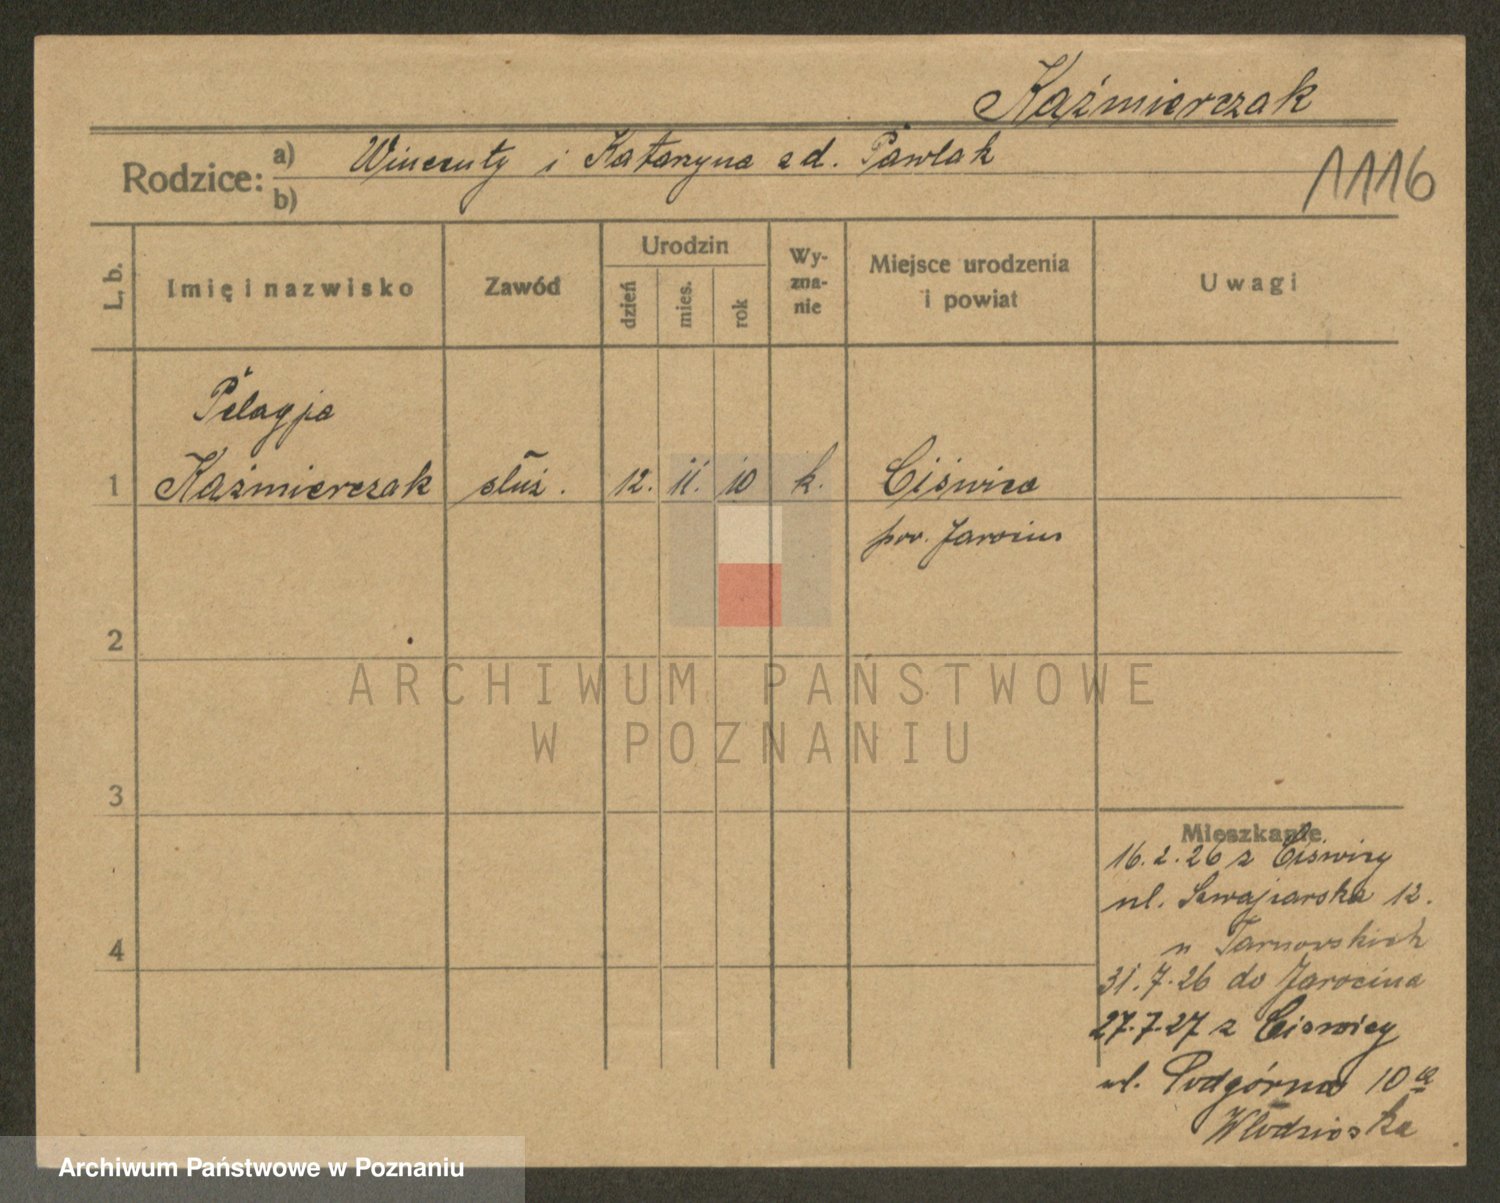 Kaźmierczak
Rodzice: a) Wincenty i Katarzyna zd. Pawlak
b)
1116
L. b.
Imię i nazwisko
Zawód
Urodzin
dzień
mies.
rok
Wy-
zna-
nie
Miejsce urodzenia
i powiat
Uwagi
Pelagja
1 Kaźmierczak służ. 12. 11. 10 k. Ciświca
pow. Jarocin
2
3
4
Mieszkanie
16.2.26 z Ciświcy
ul. Szwajcarska 12.
u Tarnowskich
31.7.26 do Jarocina
27.7.27 z Ciswicy
ul. Podgórna 10a
ARCHIWUM PAŃSTWOWE
W POZNANIU
Archiwum Państwowe w Poznaniu